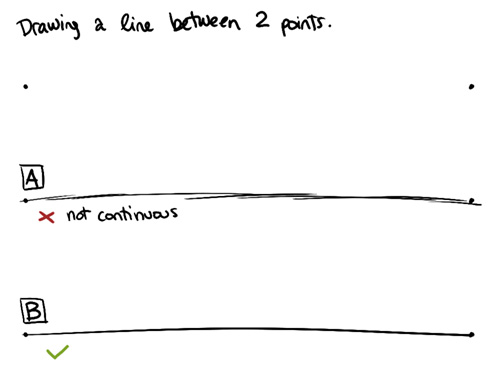 Drawing a line between 2 points.
A
not continuous
B